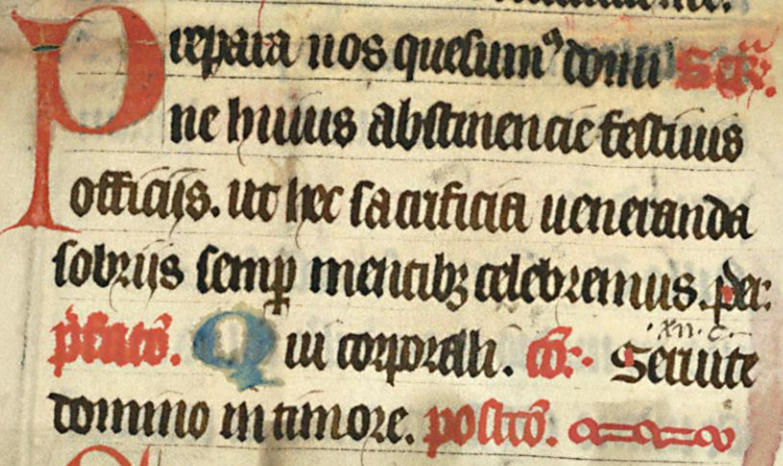 Prepara nos quesumꝰ domi Secr̄.
ne huius abstinencie festiuis
officiis. ut hec sacrificia ueneranda
sobriis semꝑ mentibꝫ celebremus. per:
p̄fatō. Qui corporali. cō: Seruite
domino in timore. postcō.